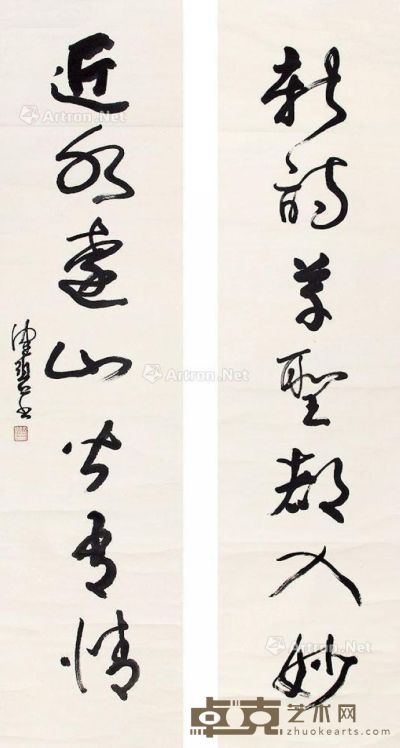 新詩草聖都入妙
近水遠山皆有情
Artron.Net
Artron.Net
Artron.Net
Artron.Net
Artron.Net
卓克艺术网
zhuokearts.com